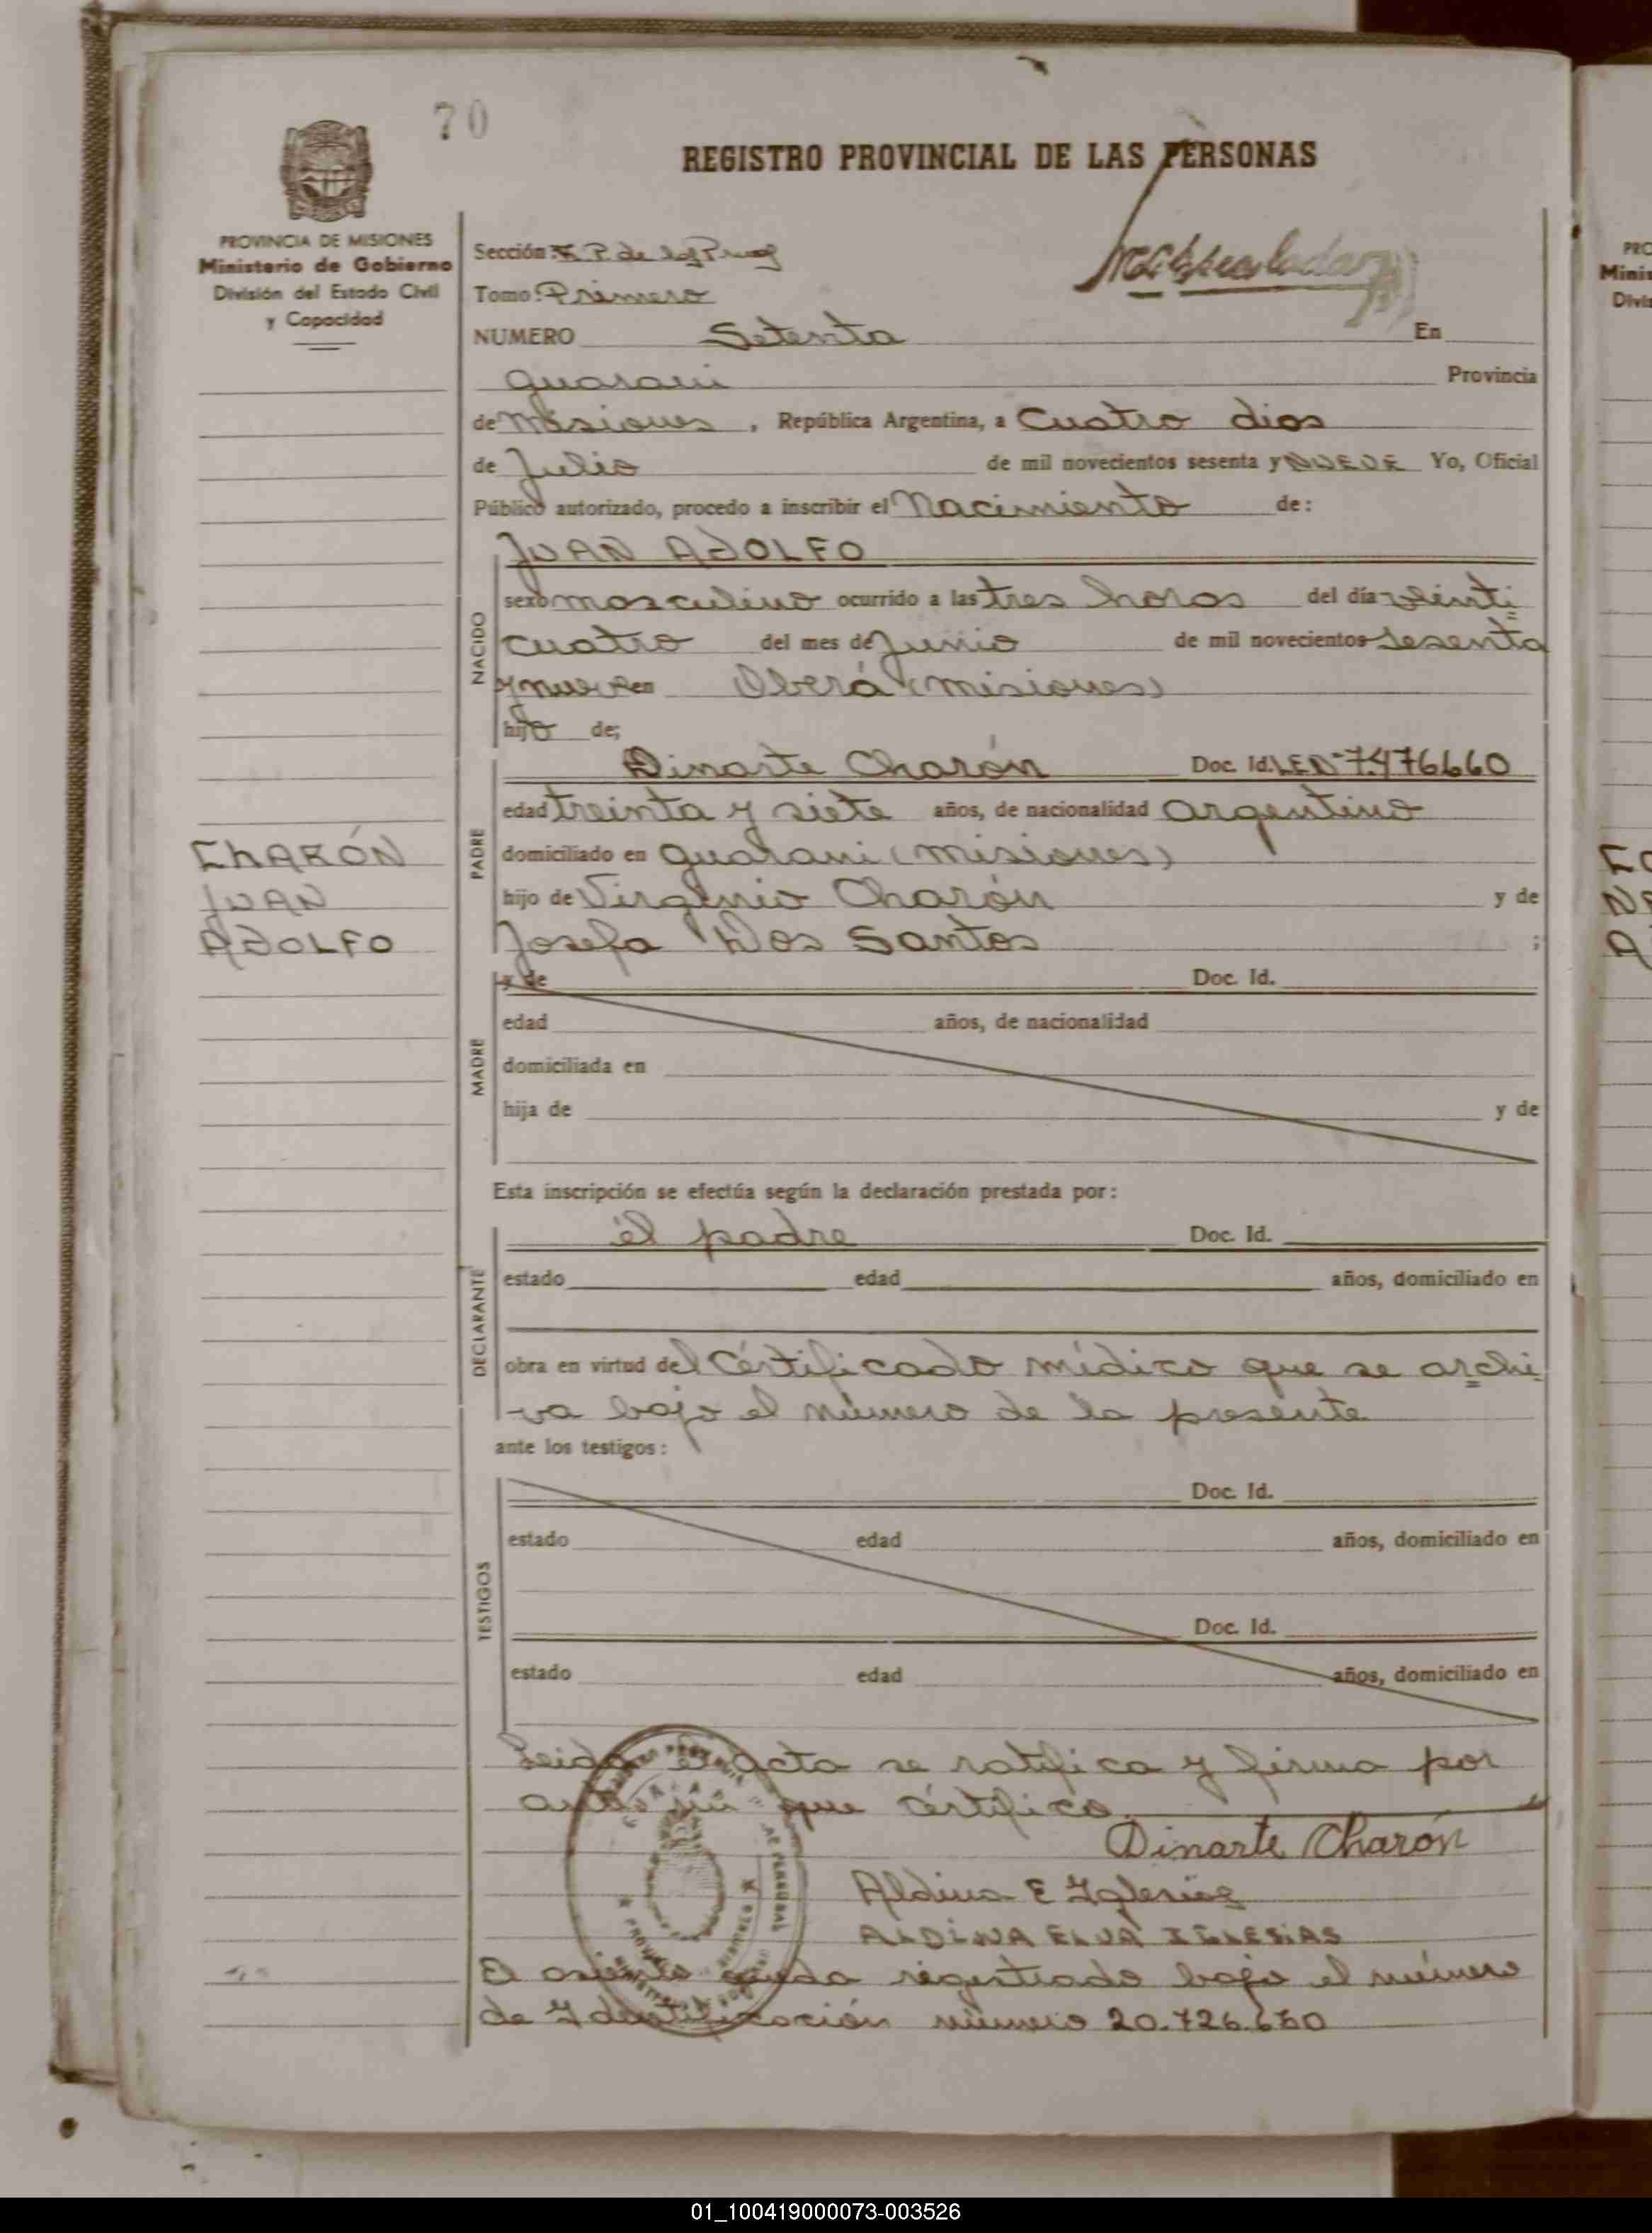 70
REGISTRO PROVINCIAL DE LAS PERSONAS
PROVINCIA DE MISIONES
Ministerio de Gobierno
División del Estado Civil
y Capacidad
Sección: R. P. de las
Tomo: Primero
NUMERO Setenta En
Guarani Provincia
de Misiones, República Argentina, a Cuatro dias
de Julio de mil novecientos sesenta y NUEVE Yo, Oficial
Público autorizado, procedo a inscribir el Nacimiento de:
JUAN ADOLFO
NACIDO
sexo masculino ocurrido a las tres horas del día veinti
cuatro del mes de Junio de mil novecientos sesenta
y nueve en Oberá (misiones)
hijo de;
PADRE
Dinarte Charón Doc. Id. L.E.Nº 7.476660
edad treinta y siete años, de nacionalidad argentino
domiciliado en Guarani (misiones)
hijo de Virginio Charón y de
Josefa Dos Santos ;
CHARÓN
JUAN
ADOLFO
MADRE
y de Doc. Id.
edad años, de nacionalidad
domiciliada en
hija de y de
Esta inscripción se efectúa según la declaración prestada por:
DECLARANTE
él padre Doc. Id.
estado edad años, domiciliado en
obra en virtud del Cértificado médico que se archi
va bajo el número de la presente
ante los testigos:
TESTIGOS
Doc. Id.
estado edad años, domiciliado en
Doc. Id.
estado edad años, domiciliado en
Leida el acta se ratifica y firma por
ante mi que cértifico.
Dinarte Charón
Aldina E Iglesias
ALDINA ELVA IGLESIAS
El asiento queda registrado bajo el número
de Identificación número 20.726.650
01_100419000073-003526